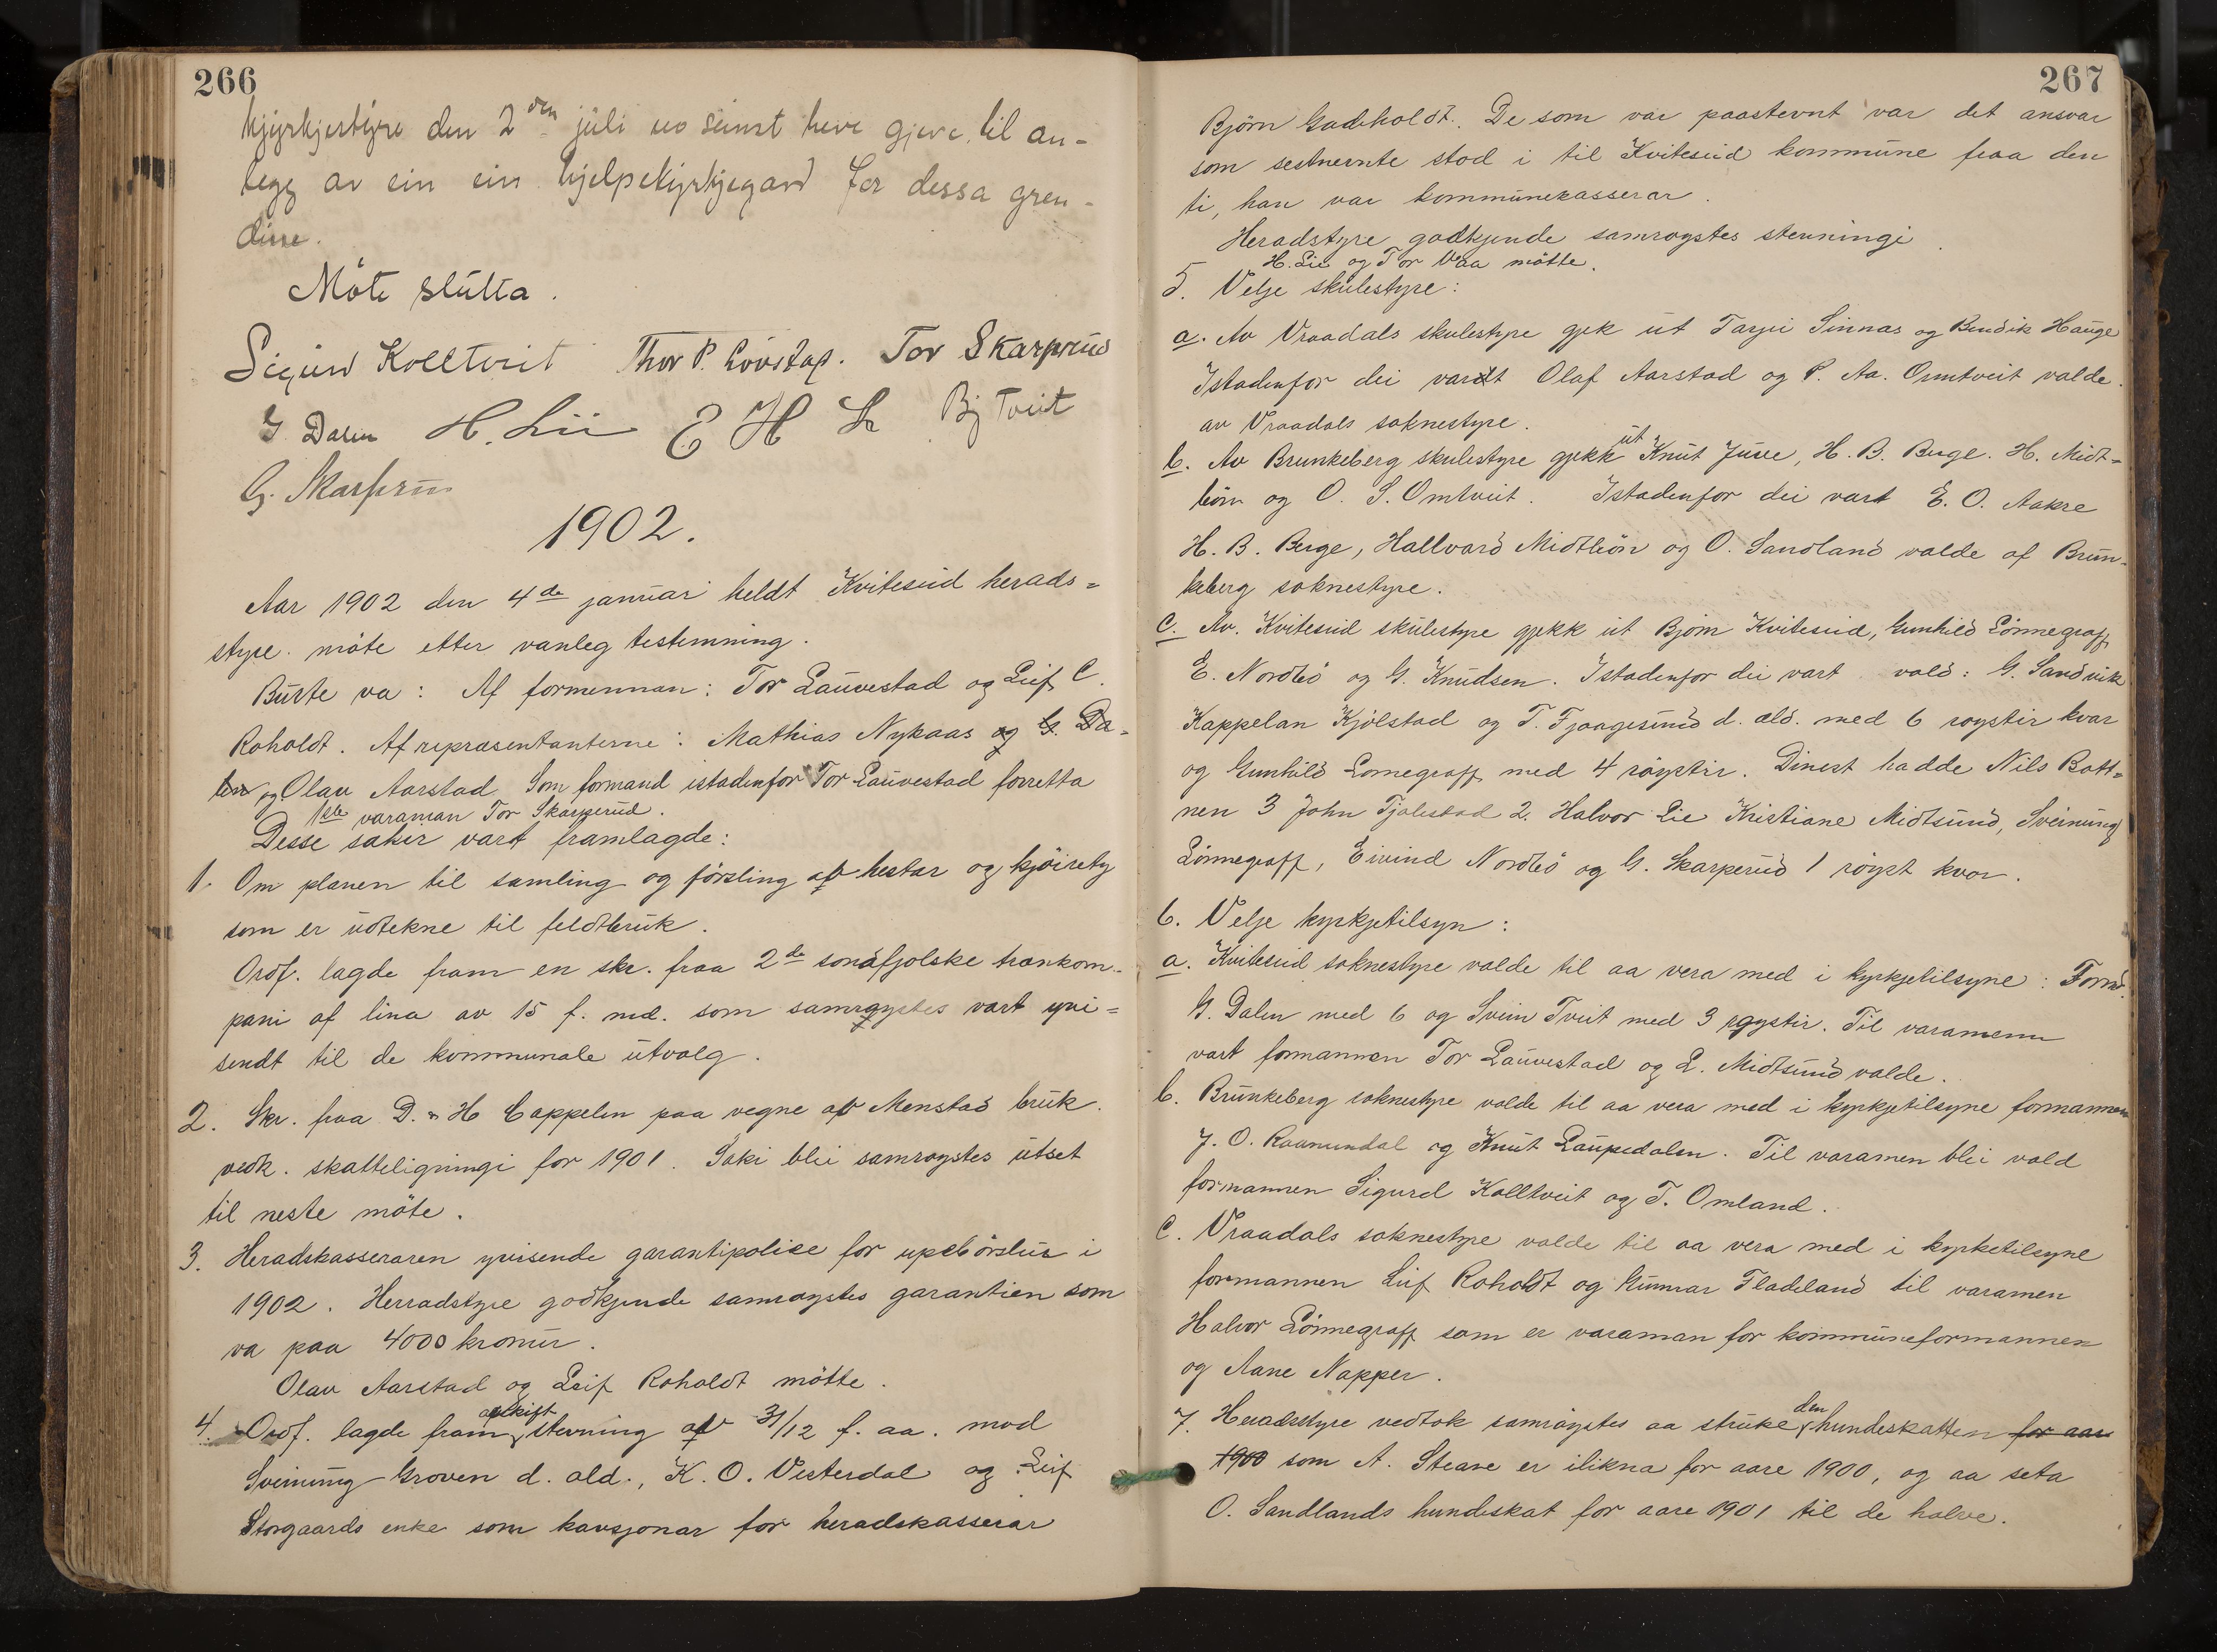 266
kyrkjestyre den 2den juli uo seinst heve gjeve til an-
legg av ein ein hjelpekyrkjegard for dessa gren-
dine.
Möte slutta.
Sigurd Kolltveit Thor P. Lövstad. Tor Skarprud
G Dalen H. Lii E H L Bj Tveit
G. Skarprud
1902.
Aar 1902 den 4de januar heldt Kviteseid herads=
styre möte etter vanleg testemning.
Burte va: Af formennan: Tor Lauvestad og Leif C.
Roholdt. Af representanterne: Mathias Nykaas og G. Da=
len og Olav Aarstad Som formand istadenfor Tor Lauvestad forretta
1ste varaman Tor Skarperud.
Desse sakir vart framlagde:
1. Om planen til samling og försling af hestar og kjöirety
som er udtekne til feldtbruk.
Ordf. lagde fram en skr. fraa 2de sondafjolske trænkom-
pani af lina av 15 f. md. som samrøystes vart yvi=
sendt til de kommunale utvalg.
2. Skr. fraa D. & H Cappelen paa vegne af Menstad bruk.
vedk. skatteligningi for 1901. Saki blei samrøystes utset
til neste möte.
3. Heradskasseraren yvisende garantipolice for uppbörslur i
1902. Herradstyre godkjende samrøystes garantien som
va paa 4000 kronur.
Olav Aarstad og Leif Roholdt mötte.
4. Ordf. lagde fram avskift stevning af 31/12 f. aa. mod
Sveinung Groven d. ald., K. O. Vesterdal og Leif
Storgaards enke som kavsjonar for heradskasserar
267
Björn Gadeholdt. De som var paastevnt var det ansvar
som sestnevnte stod i til Kviteseid kommune fraa den
ti, han var kommunekasserar.
Heradstyre godkjende samrøystes stevningi.
H. Lie og Tor Vaa mötte.
5. Velje skulestyre:
a. Av Vraadals skulestyre gjek ut Tarjei Sinnas og Bendik Hauge
Istadenfor dei vardt Olaf Aarstad og P. Aa. Ormtveit valde.
av Vraadals soknestyre.
b. Av Brunkeberg skulestyre gjekk ut Knut Juve, H. B. Berge. H. Midt=
böen og O. S. Omtveit. Istadenfor dei vart E. O. Aakre
H. B. Berge, Hallvard Midtböen og O. Sandland valde af Brun-
keberg soknestyre.
C. Av. Kviteseid skulestyre gjekk ut Bjørn Kviteseid, Gunhild Lönnegraff
E. Nordbö og G. Knudsen. Istadenfor dei vart vald: G. Sandvik
Kappelan Kjölstad og T. Fjaagesund d. ald. med 6 røystir kvar
og Gunhild Lonnegraff med 4 röystir. Dinest hadde Nils Bott=
nen 3 John Tjalestad 2. Halvor Lie Kristiane Midtsund, Sveinung
Lönnegraff, Eivind Nordbö og G. Skarperud 1 röyst kvar.
6. Velje kyrkjetilsyn:
a. Kviteseid soknestyre valde til aa vera med i kyrkjetilsyne: Formd.
G. Dalen med 6 og Svein Tveit med 3 røystir. Til varamenn
vart formannen Tor Lauvestad og L. Midtsund valde.
b. Brunkeberg soknestyre valde til aa vera med i kyrkjetilsyne formannen
J. O. Raamundal og Knut Laupedalen. Til varamen blei vald
formannen Sigurd Kolltveit og T. Omland.
C. Vraadals soknestyre valde til aa vera med i kyrketilsyne
formannen Leif Roholdt og Gunnar Fladeland til varamen
Halvor Lönnegraff som er varaman for kommuneformannen
og Aane Napper.
7. Heradsstyre vedtok samröystes aa struke den hundeskatten for aar
1900 som A. Steane er ilikna for aare 1900, og aa seta
O. Sandlands hundeskat for aare 1901 til de halve.